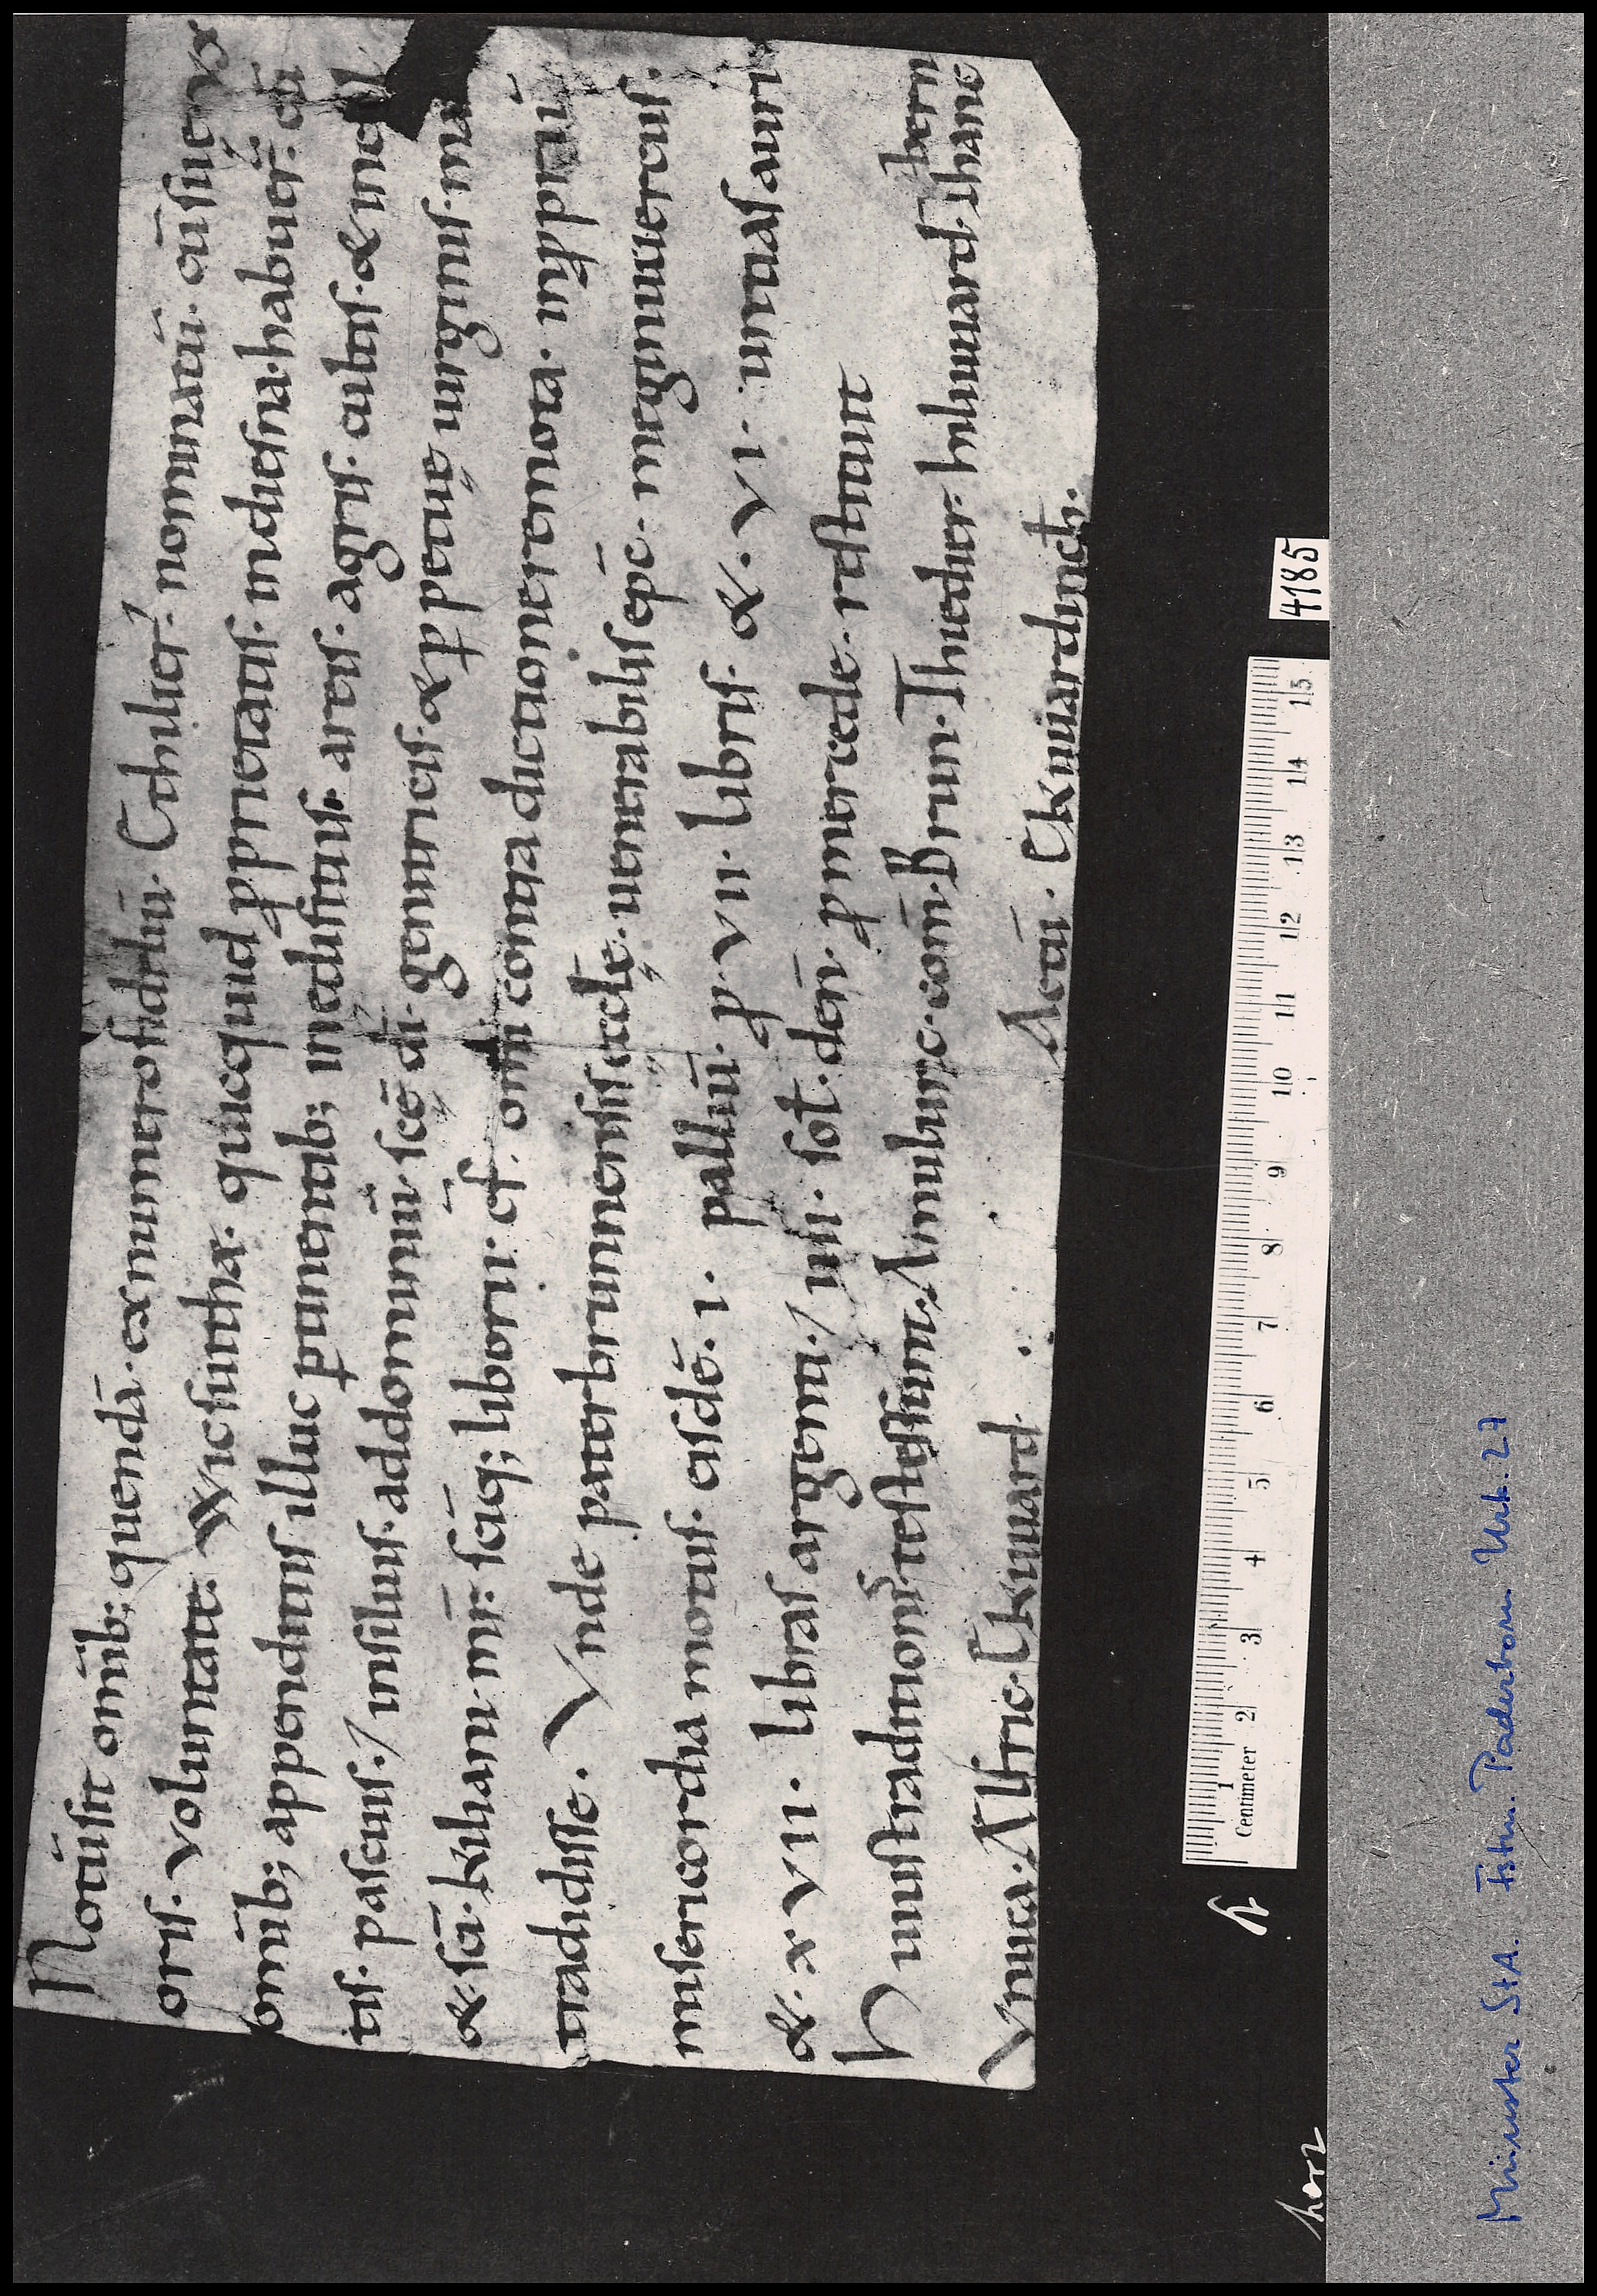 Notū sit omīb; quendā· ex numero fideliū· Ethilier· nominatū· cū sue ux
oris· voluntate· Wicsuithæ· quicquid ꝓprietatis· in diesna· habuer̄· cū
omīb; appenditiis illuc ꝑtinentib; in ędifitiis· areis· agris· cultis· & incul
tis· pascuis·/ in siluis· ad dominiū· scē dī· genitricis· & ꝑpetuę uirginis· ma
&· scī· kiliani· mr̄· scīq; liborii· cf̄· omi contradictione remota· in ꝓpriū
tradidisse· Vnde paterbrunnensis ęccłę· uenerabilis ep̄c· meginuuercus·
misericordia motus· eisdē· i· palliū· ꝓ· vii· libris· &· vi· untias auri
&· xvii· libras argenti·/ iiii· soł· den̄· ꝓ mercede· restituit
bern
Huius traditionis· testes sunt· Amulunc· com̄· Brun· Thiedier· hiluuard· Thanc
Vnuca· Alfric· Ekuuard· Actū· Ekuuardinct·
Centimeter 1 2 3 4 5 6 7 8 9 10 11 12 13 14 15
4185
Münster StA. Fstm. Paderborn Urk. 27